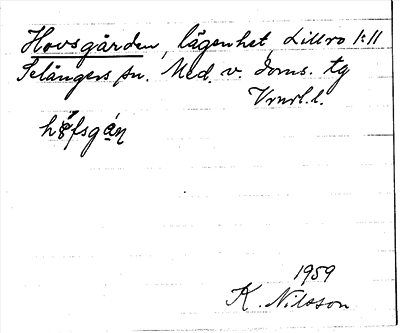 Hovsgården, lägenhet, Lillro 1:11
Selångers sn. Med. v. doms. tg
Vrnrl. l.

1959
K. Nilsson